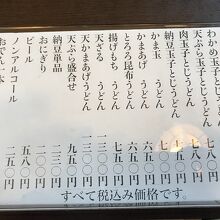 わかめ玉子とじうどん
天ぷら玉子とじうどん
肉玉子とじうどん 七八〇円
納豆玉子とじうどん 七〇〇円
かま玉うどん
かまあげうどん 六五〇円
とろろ昆布うどん 六五〇円
揚げもちうどん 七五〇円
天ざるうどん
天かまあげうどん
天ぷら盛合せ 九五〇円
納豆単品
おにぎり
ビール 五八〇円
ノンアルコール 三五〇円
おでん一本 一五〇円
すべて税込み価格です。